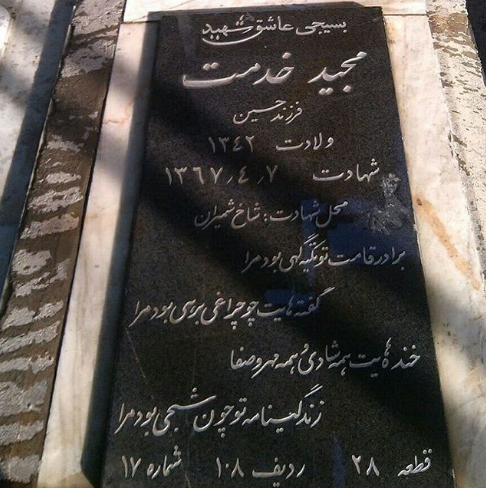 بسیجی عاشق شهید
مجید خدمت
فرزند حسین
ولادت ۱۳۴۲
شهادت ۱۳۶۷٫۴٫۷
محل شهادت: شاخ شمیران
برادر قامت تو تکیه گهی بود مرا
گفته هایت چو چراغی بر سی بود مرا
خنده هایت همه شادی و همه مهر و صفا
زندگینامه تو چون شمعی بود مرا
قطعه ۲۸ ردیف ۱۰۸ شماره ۱۷